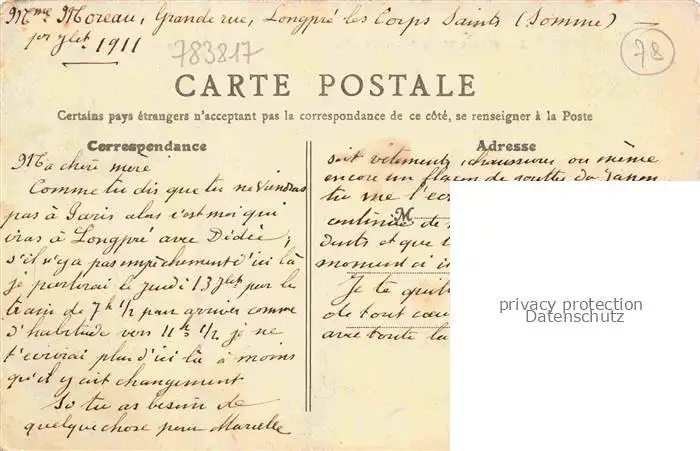 Mme Moreau, Grande rue, Longpré les Corps Saints (Somme)
1er Jlet 1911
783817
78
CARTE POSTALE
Certains pays étrangers n'acceptant pas la correspondance de ce côté, se renseigner à la Poste
Correspondance
Ma chère mère
Comme tu dis que tu ne viendras
pas à Paris alors c'est moi qui
iras à Longpré avec Dédée,
s'il n'y a pas empêchement d'ici là
je partirai le jeudi 13 Jlet par le
train de 7h 1/2 pour arriver comme
d'habitude vers 11h 1/2 je ne
t'écrirai plus d'ici là à moins
qu'il y ait changement
Si tu as besoin de
quelque chose pour Marcelle
Adresse
soit vêtements, chaussures ou même
encore un flacon de gouttes du
tu me l'
M
continue de
dents et que
moment ci
Je te
de tout cœu
avec toute la
privacy protection
Datenschutz